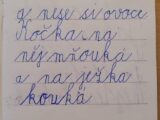 a nese si ovoce
Kočka na
něj mňouká
a na ježka
kouká